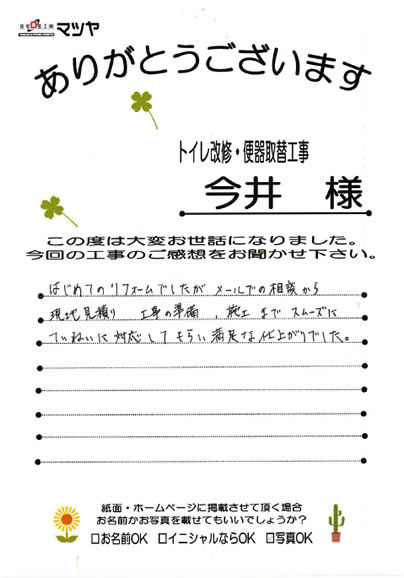 住まい工房 マツヤ
ありがとうございます
トイレ改修・便器取替工事
今井 様
この度は大変お世話になりました。
今回の工事のご感想をお聞かせ下さい。
はじめてのリフォームでしたが メールでの相談から
現地見積り 工事の準備、施工まで スムーズに
ていねいに対応してもらい満足な仕上がりでした。
紙面・ホームページに掲載させて頂く場合
お名前かお写真を載せてもいいでしょうか？
□お名前OK □イニシャルならOK ☑写真OK